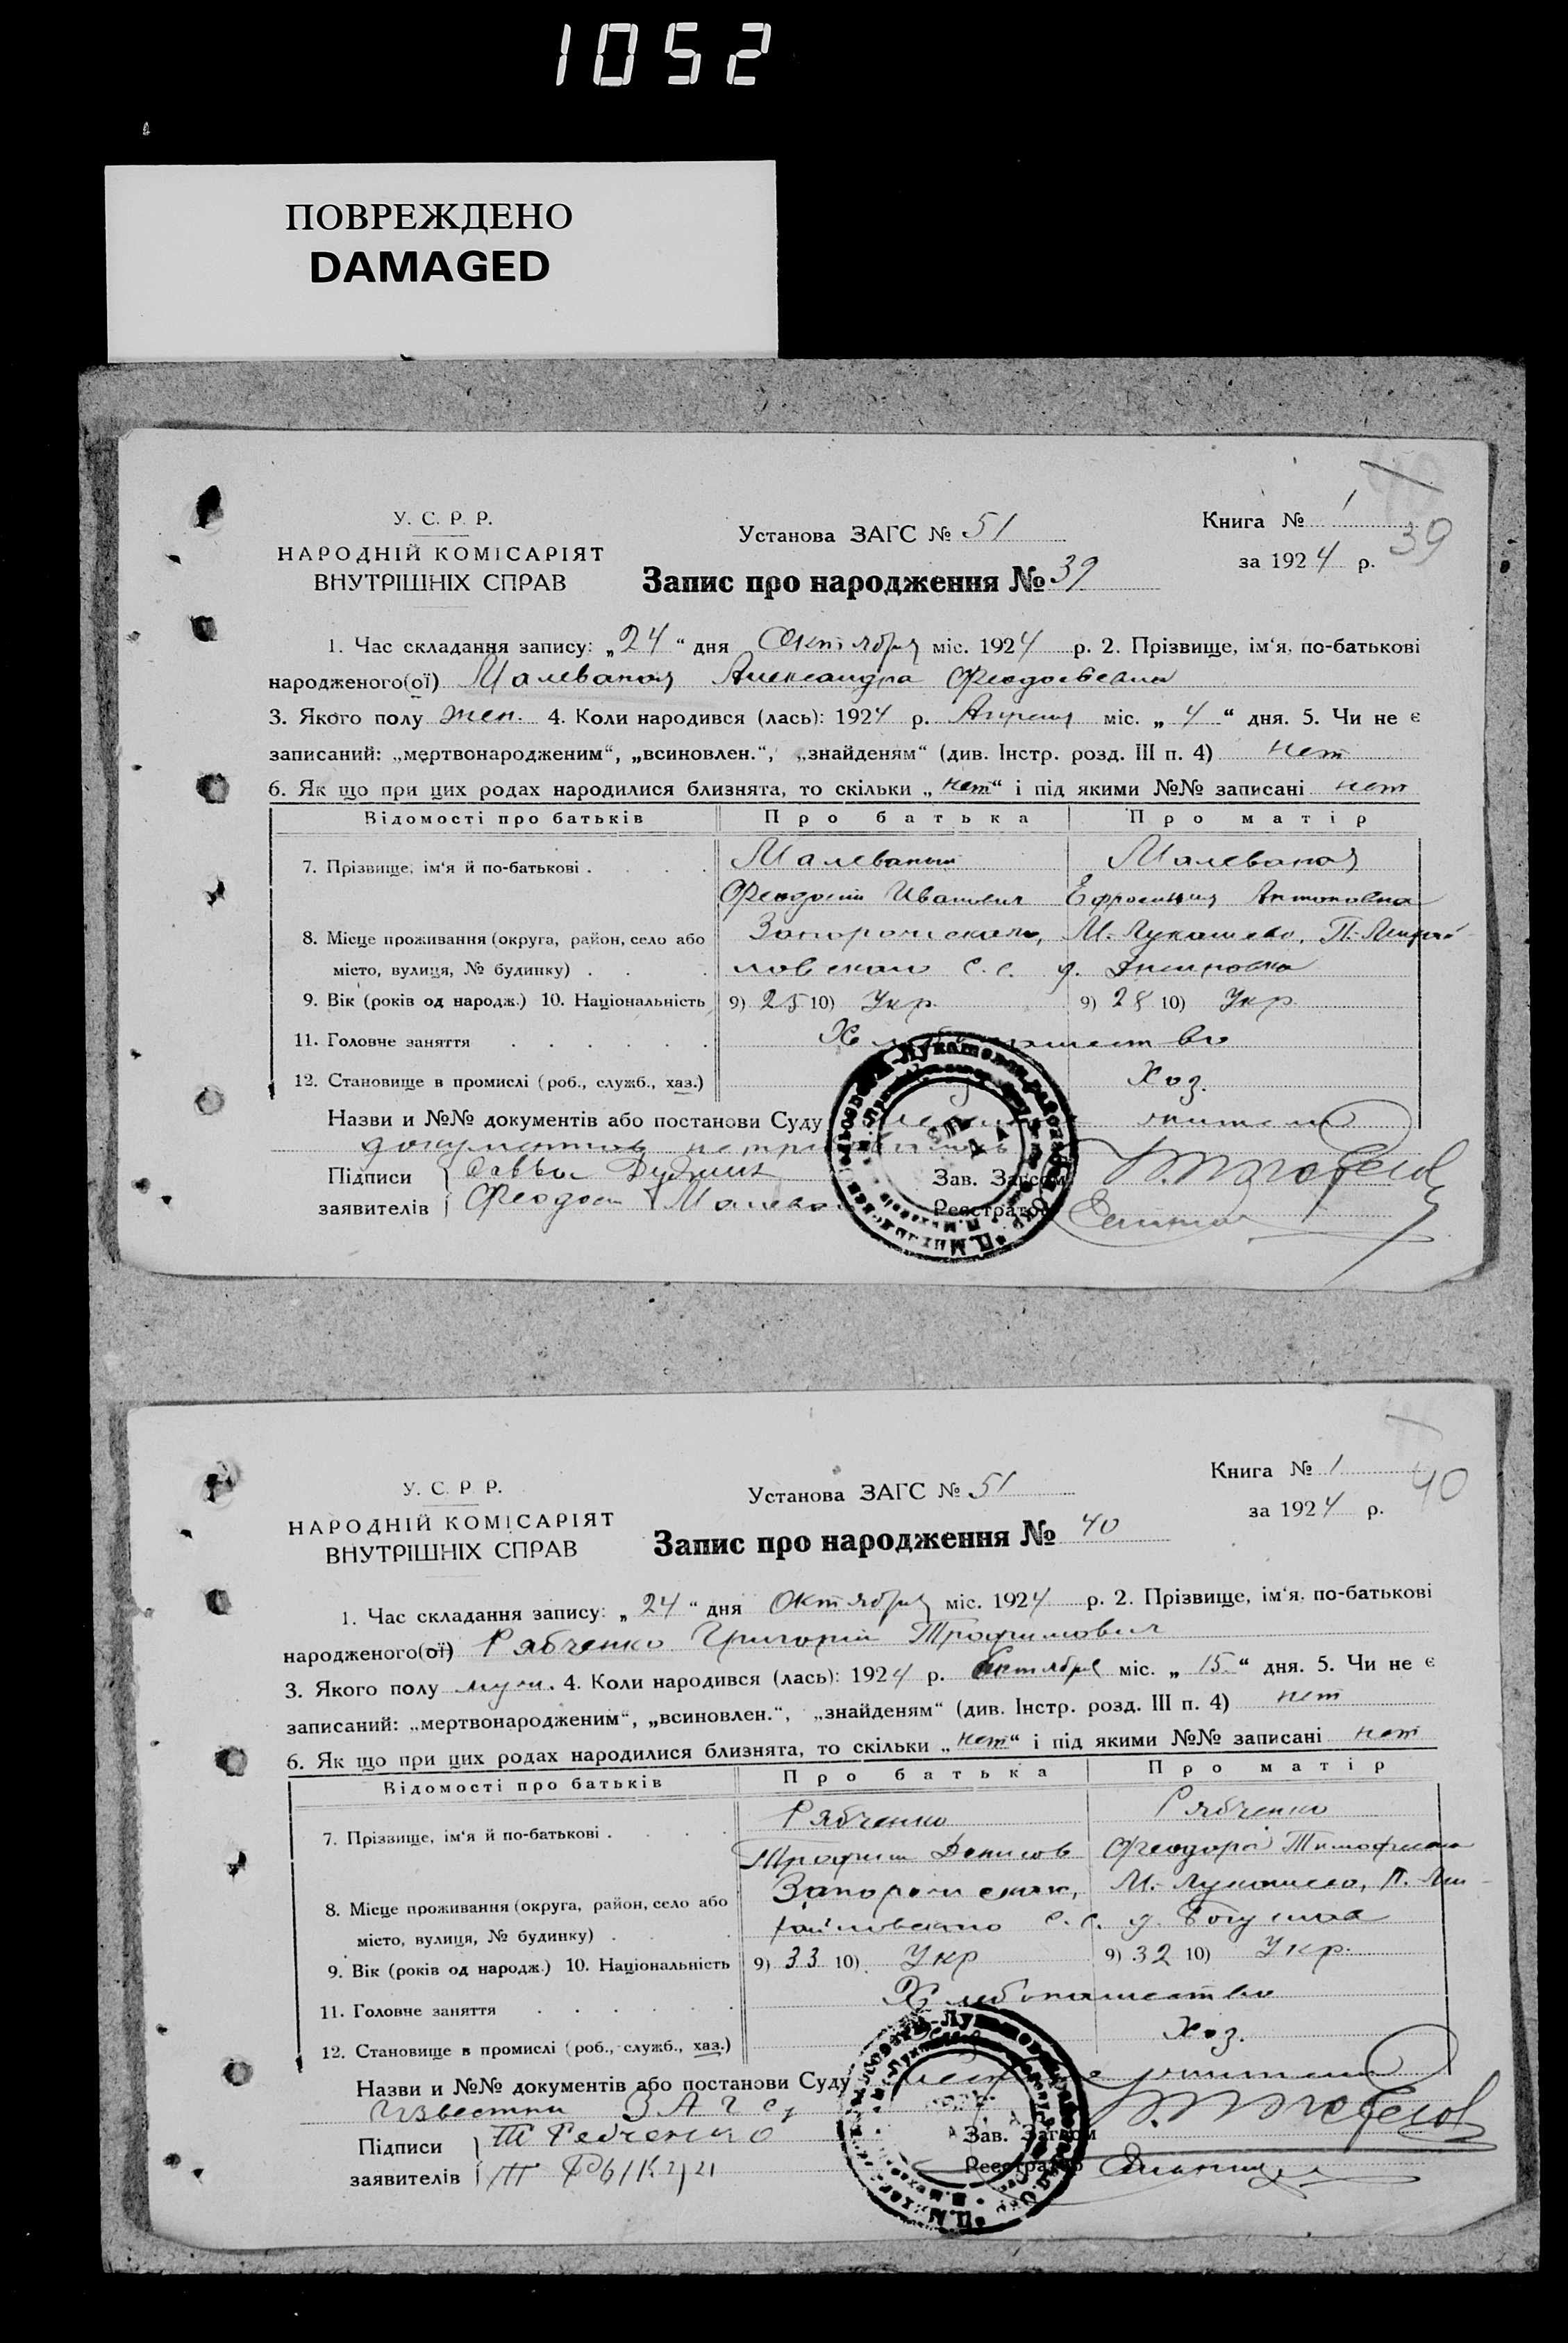 1052
ПОВРЕЖДЕНО
DAMAGED
У. С. Р. Р.
НАРОДНІЙ КОМІСАРІЯТ
ВНУТРІШНІХ СПРАВ
Установа ЗАГС № 51
Запис про народження № 39
Книга № 1
за 1924 р.
39
1. Час складання запису: „24“ дня Октября міс. 1924 р. 2. Прізвище, ім‘я, по-батькові
народженого(ої) Малеваная Александра Феодосьевна
3. Якого полу жен. 4. Коли народився (лась): 1924 р. Апреля міс. „4“ дня. 5. Чи не є
записаний: „мертвонародженим“, „всиновлен.“, „знайденям“ (див. Інстр. розд. III п. 4) нет
6. Як що при цих родах народилися близнята, то скільки „нет“ і під якими №№ записані нет
Відомості про батьків Про батька Про матір
7. Прізвище, ім‘я й по-батькові . . . . Малеваный Малеваная
Феодосий Иванович Ефросиния Антоновна
8. Місце проживання (округа, район, село або Запорожская, М.-Лукашево,
місто, вулиця, № будинку) . . . ловского с. с.
9. Вік (років од народж.) 10. Національність 9) 25 10) Укр. 9) 28 10) Укр.
11. Головне заняття . . . . . .
12. Становище в промислі (роб., служб., хаз.) Хоз.
Назви и №№ документів або постанови Суду
документов
Підписи Саввы
заявителів Феодосий
Зав. Загсом
Реєстратор
У. С. Р. Р.
НАРОДНІЙ КОМІСАРІЯТ
ВНУТРІШНІХ СПРАВ
Установа ЗАГС № 51
Запис про народження № 40
Книга № 1
за 1924 р.
40
1. Час складання запису: „24“ дня Октября міс. 1924 р. 2. Прізвище, ім‘я, по-батькові
народженого(ої) Рябченко Григорий Трофимович
3. Якого полу муж. 4. Коли народився (лась): 1924 р. Октября міс. „15“ дня. 5. Чи не є
записаний: „мертвонародженим“, „всиновлен.“, „знайденям“ (див. Інстр. розд. III п. 4) нет
6. Як що при цих родах народилися близнята, то скільки „нет“ і під якими №№ записані нет
Відомості про батьків Про батька Про матір
7. Прізвище, ім‘я й по-батькові . . . . Рябченко Рябченко
Трофим Денисов Феодора Тимофеевна
8. Місце проживання (округа, район, село або Запорожская, М.-Лукашево, П. Ми-
місто, вулиця, № будинку) . хайловского с. с.
9. Вік (років од народж.) 10. Національність 9) 33 10) Укр 9) 32 10) Укр.
11. Головне заняття . . . . . . Хлебопашество
12. Становище в промислі (роб., служб., хаз.) Хоз.
Назви и №№ документів або постанови Суду
известны ЗАГСу
Підписи
заявителів
Зав. Загсом
Реєстратор